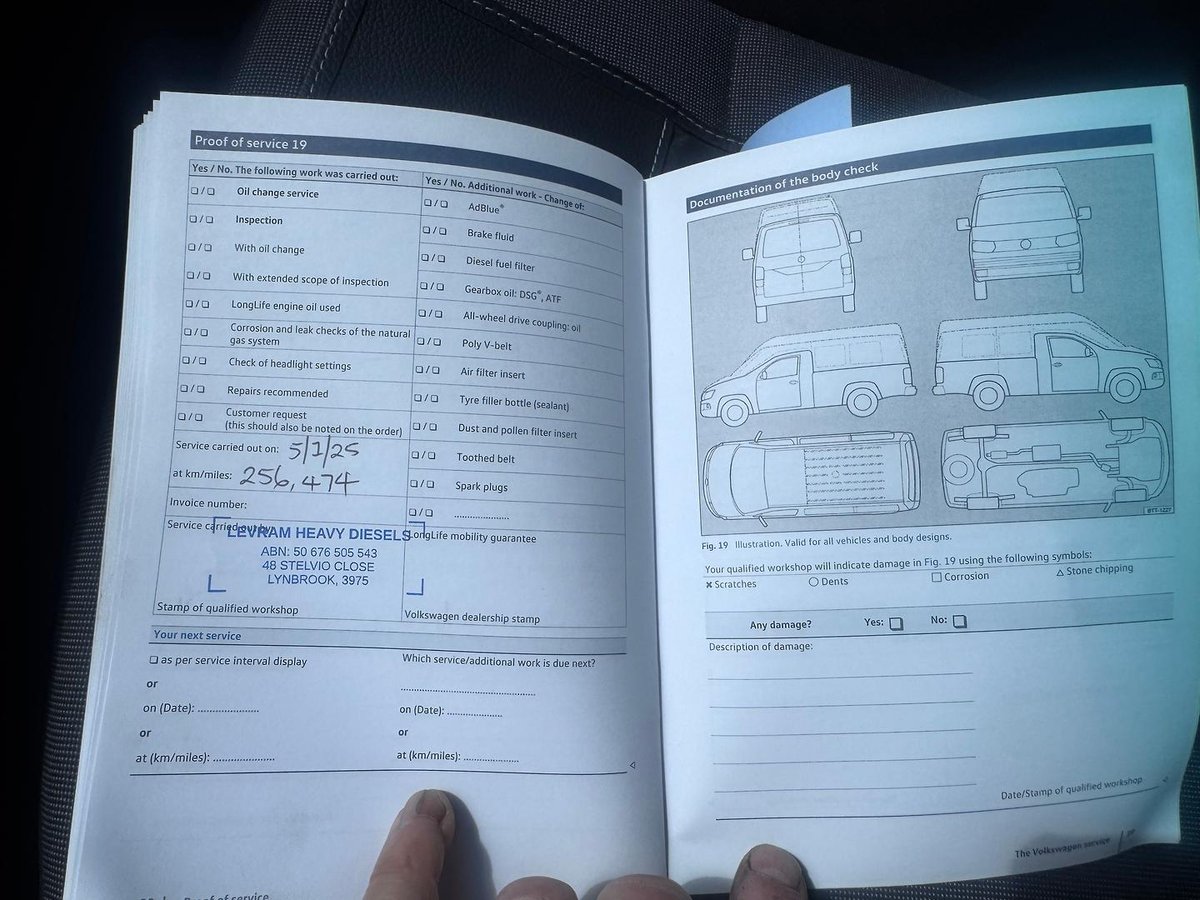 Proof of service 19
Yes / No. The following work was carried out:
❑ / ❑ Oil change service
❑ / ❑ Inspection
❑ / ❑ With oil change
❑ / ❑ With extended scope of inspection
❑ / ❑ LongLife engine oil used
❑ / ❑ Corrosion and leak checks of the natural
gas system
❑ / ❑ Check of headlight settings
❑ / ❑ Repairs recommended
❑ / ❑ Customer request
(this should also be noted on the order)
Service carried out on: 5/1/25
at km/miles: 256,474
Invoice number:
Service carried out by:
LEVRAM HEAVY DIESELS
ABN: 50 676 505 543
48 STELVIO CLOSE
LYNBROOK, 3975
Stamp of qualified workshop
Yes / No. Additional work – Change of:
❑ / ❑ AdBlue®
❑ / ❑ Brake fluid
❑ / ❑ Diesel fuel filter
❑ / ❑ Gearbox oil: DSG®, ATF
❑ / ❑ All-wheel drive coupling: oil
❑ / ❑ Poly V-belt
❑ / ❑ Air filter insert
❑ / ❑ Tyre filler bottle (sealant)
❑ / ❑ Dust and pollen filter insert
❑ / ❑ Toothed belt
❑ / ❑ Spark plugs
❑ / ❑ ....................
LongLife mobility guarantee
Volkswagen dealership stamp
Your next service
❑ as per service interval display
or
on (Date): ....................
or
at (km/miles): ....................
Which service/additional work is due next?
............................................
on (Date): ..................
or
at (km/miles): ..................
Proof of service
Documentation of the body check
BTT-1227
Fig. 19 Illustration. Valid for all vehicles and body designs.
Your qualified workshop will indicate damage in Fig. 19 using the following symbols:
✖ Scratches ○ Dents □ Corrosion △ Stone chipping
Any damage? Yes: ❑ No: ❑
Description of damage:
Date/Stamp of qualified workshop
The Volkswagen service